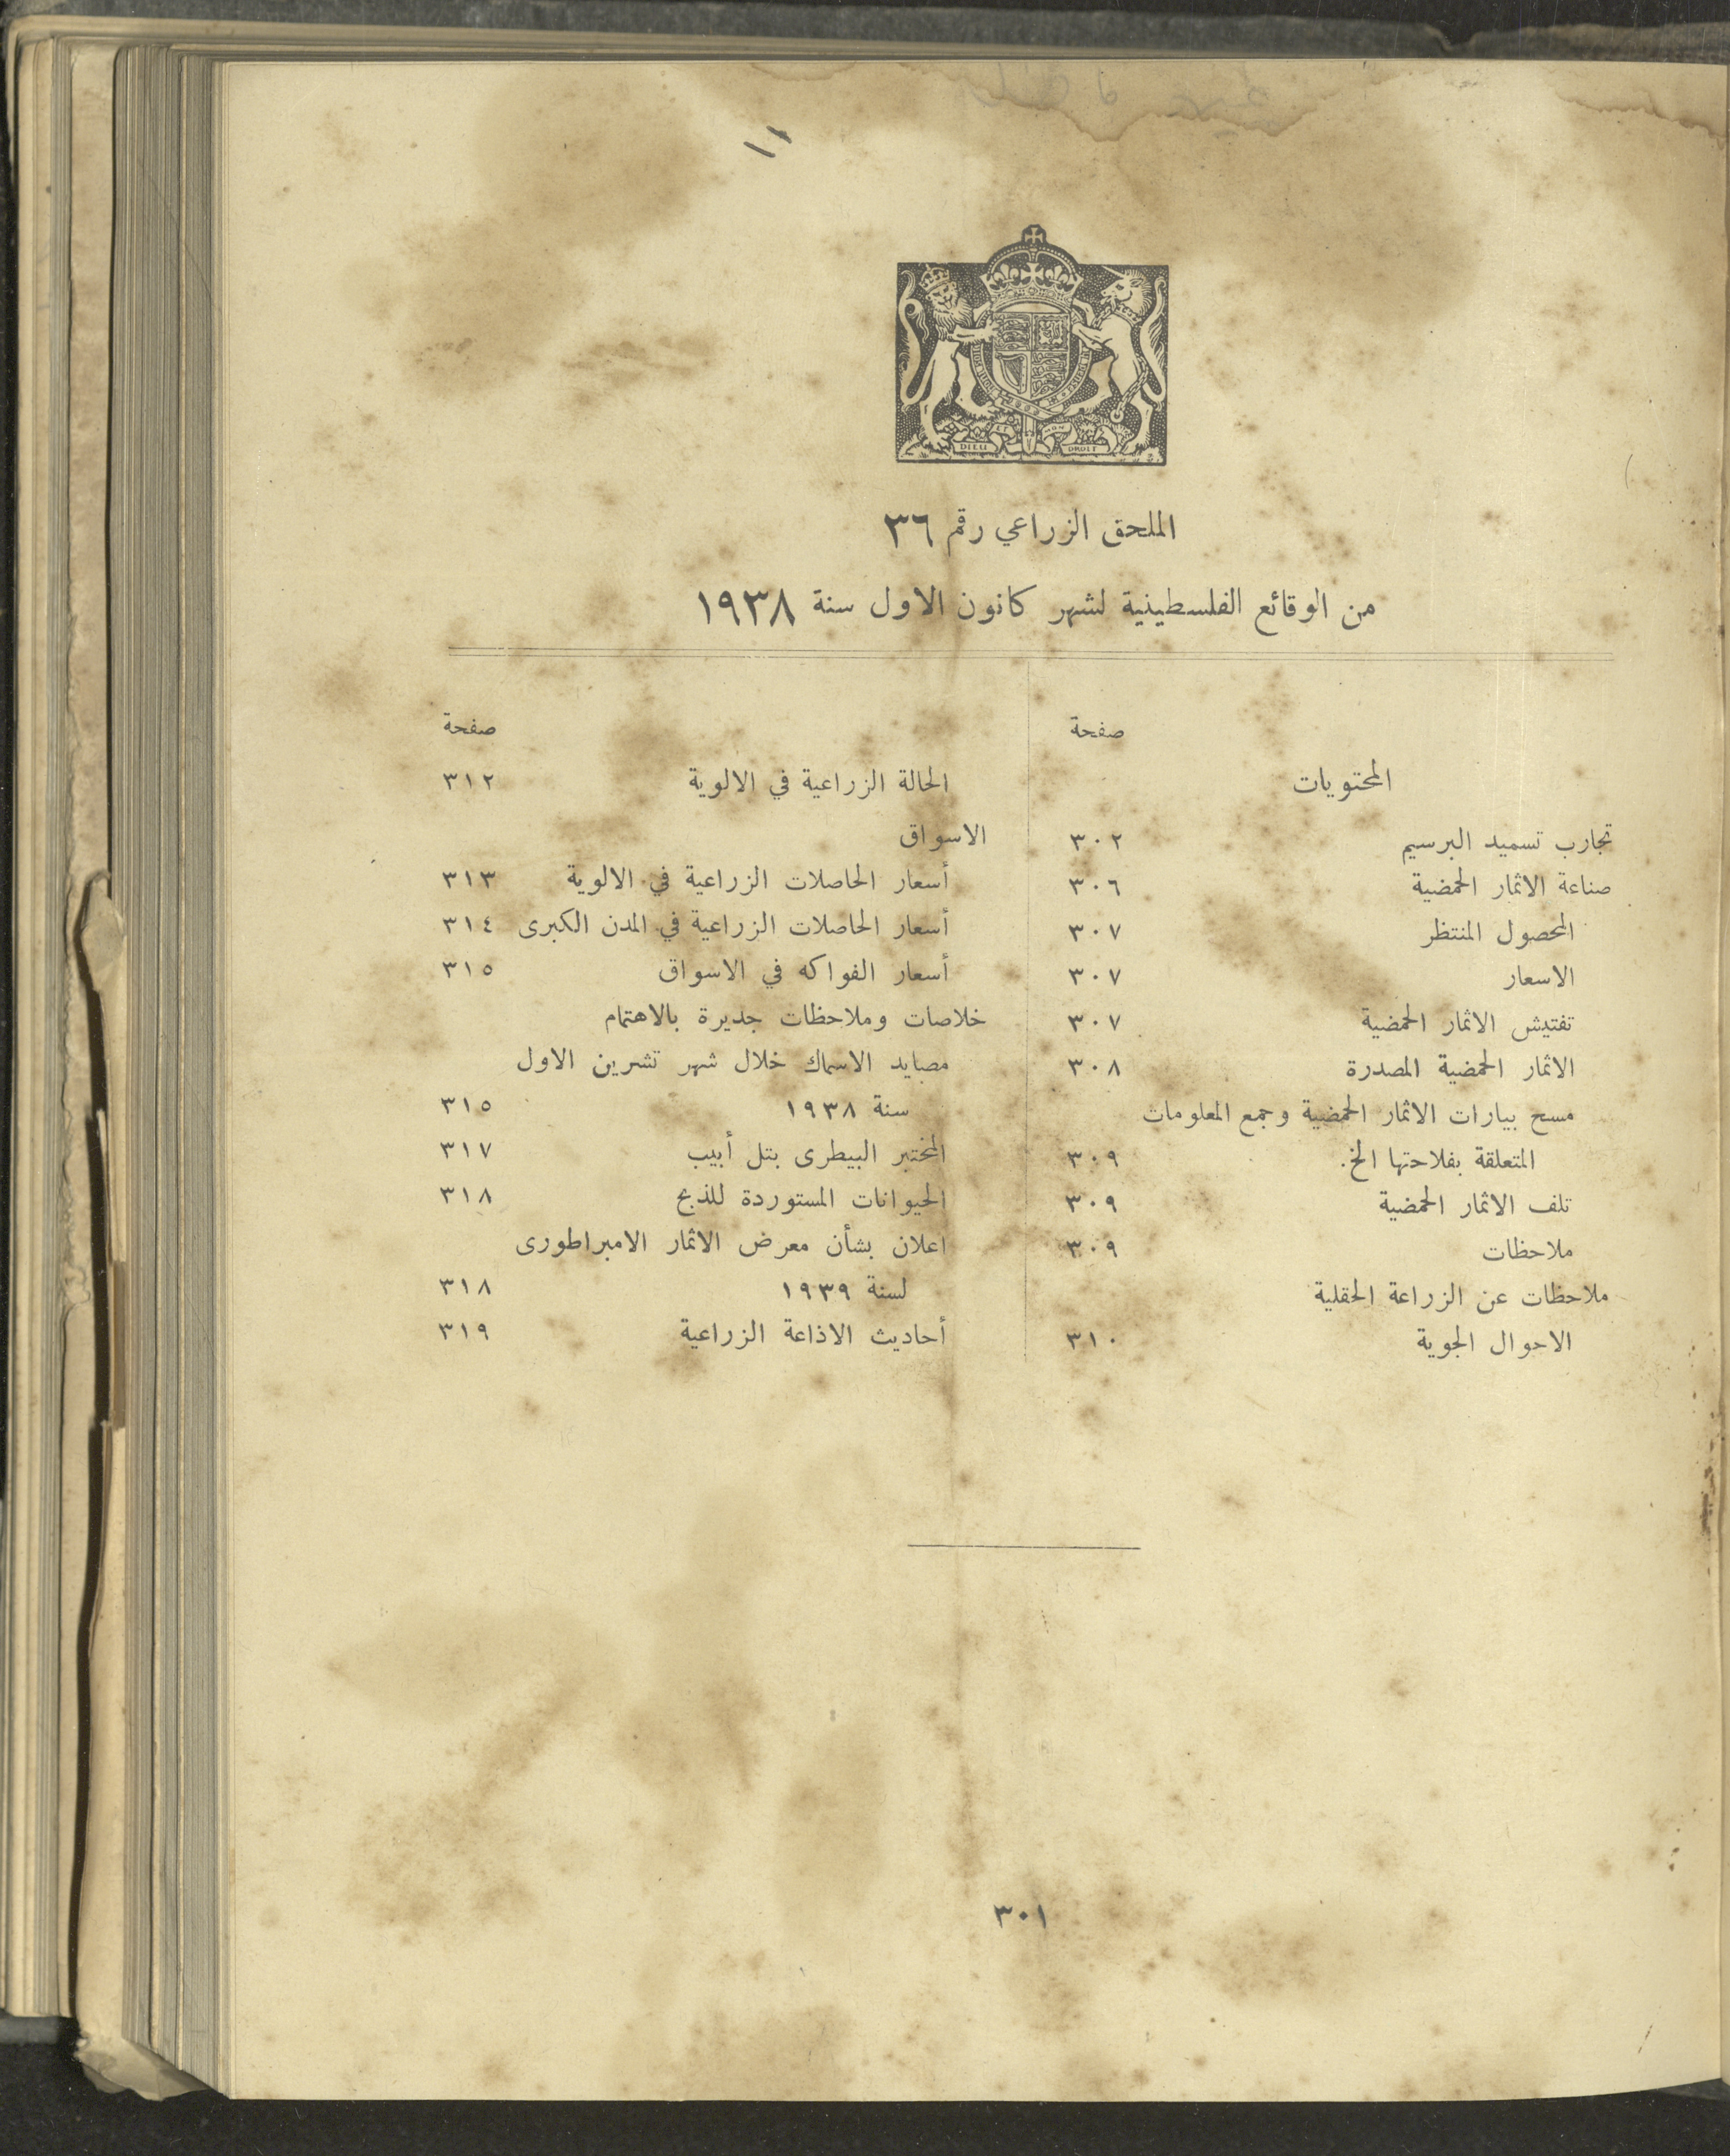 ١١
DIEU ET MON DROIT
الملحق الزراعي رقم ٣٦
من الوقائع الفلسطينية لشهر كانون الاول سنة ١٩٣٨
صفحة
المحتويات
تجارب تسميد البرسيم ٣٠٢
صناعة الاثمار الحمضية ٣٠٦
المحصول المنتظر ٣٠٧
الاسعار ٣٠٧
تفتيش الاثمار الحمضية ٣٠٧
الاثمار الحمضية المصدرة ٣٠٨
مسح بيارات الاثمار الحمضية وجمع المعلومات
المتعلقة بفلاحتها الخ. ٣٠٩
تلف الاثمار الحمضية ٣٠٩
ملاحظات ٣٠٩
ملاحظات عن الزراعة الحقلية
الاحوال الجوية ٣١٠
صفحة
الحالة الزراعية في الالوية ٣١٢
الاسواق
أسعار الحاصلات الزراعية في الالوية ٣١٣
أسعار الحاصلات الزراعية في المدن الكبرى ٣١٤
أسعار الفواكه في الاسواق ٣١٥
خلاصات وملاحظات جديرة بالاهتمام
مصايد الاسماك خلال شهر تشرين الاول
سنة ١٩٣٨ ٣١٥
المختبر البيطرى بتل أبيب ٣١٧
الحيوانات المستوردة للذبح ٣١٨
اعلان بشأن معرض الاثمار الامبراطورى
لسنة ١٩٣٩ ٣١٨
أحاديث الاذاعة الزراعية ٣١٩
٣٠١